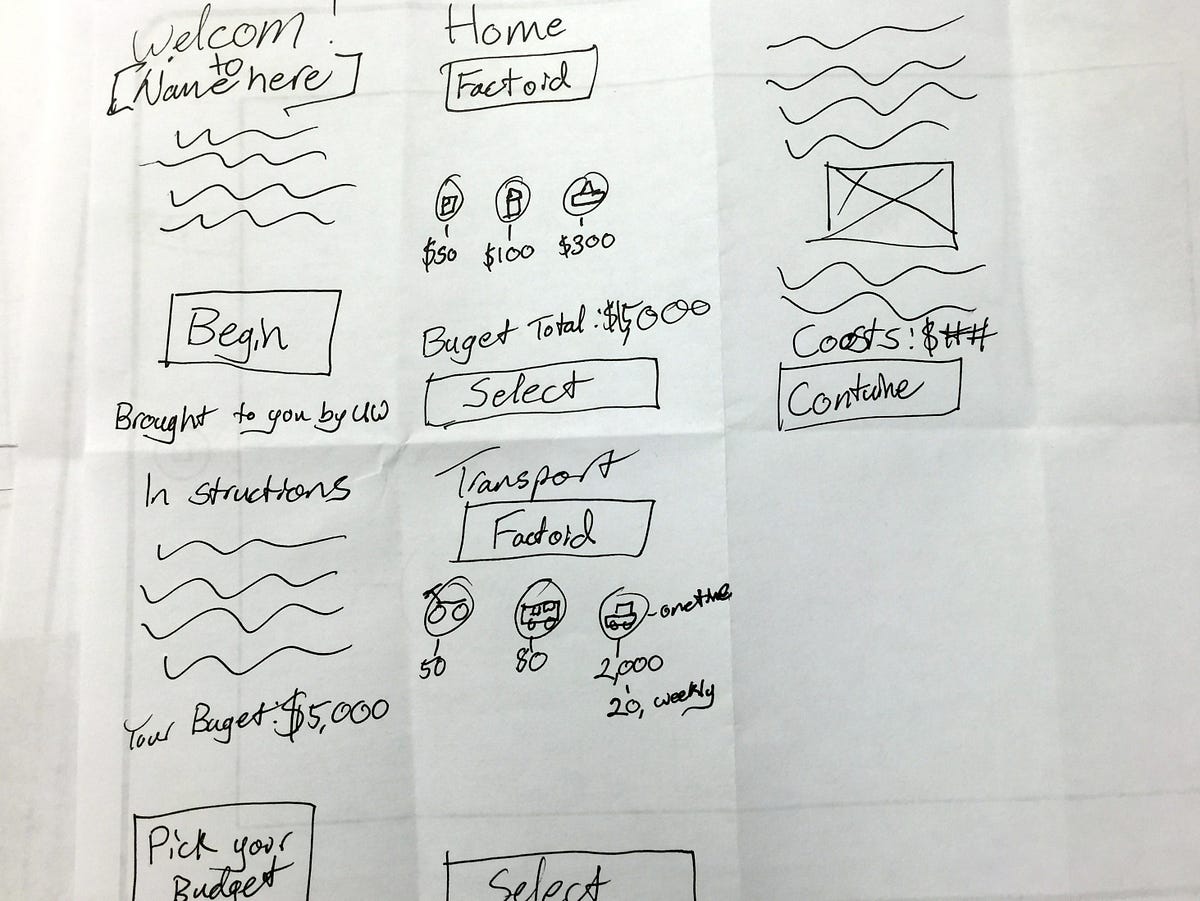 Welcom !
to
[Name here]
Begin
Brought to you by UW
In structions
Your Buget: $5,000
Pick your
Budget
Home
Factoid
$50 $100 $300
Buget Total: $5,000
Select
Transport
Factoid
onetime
50 80 2,000
20, weekly
Select
Coosts: $##
Contuine